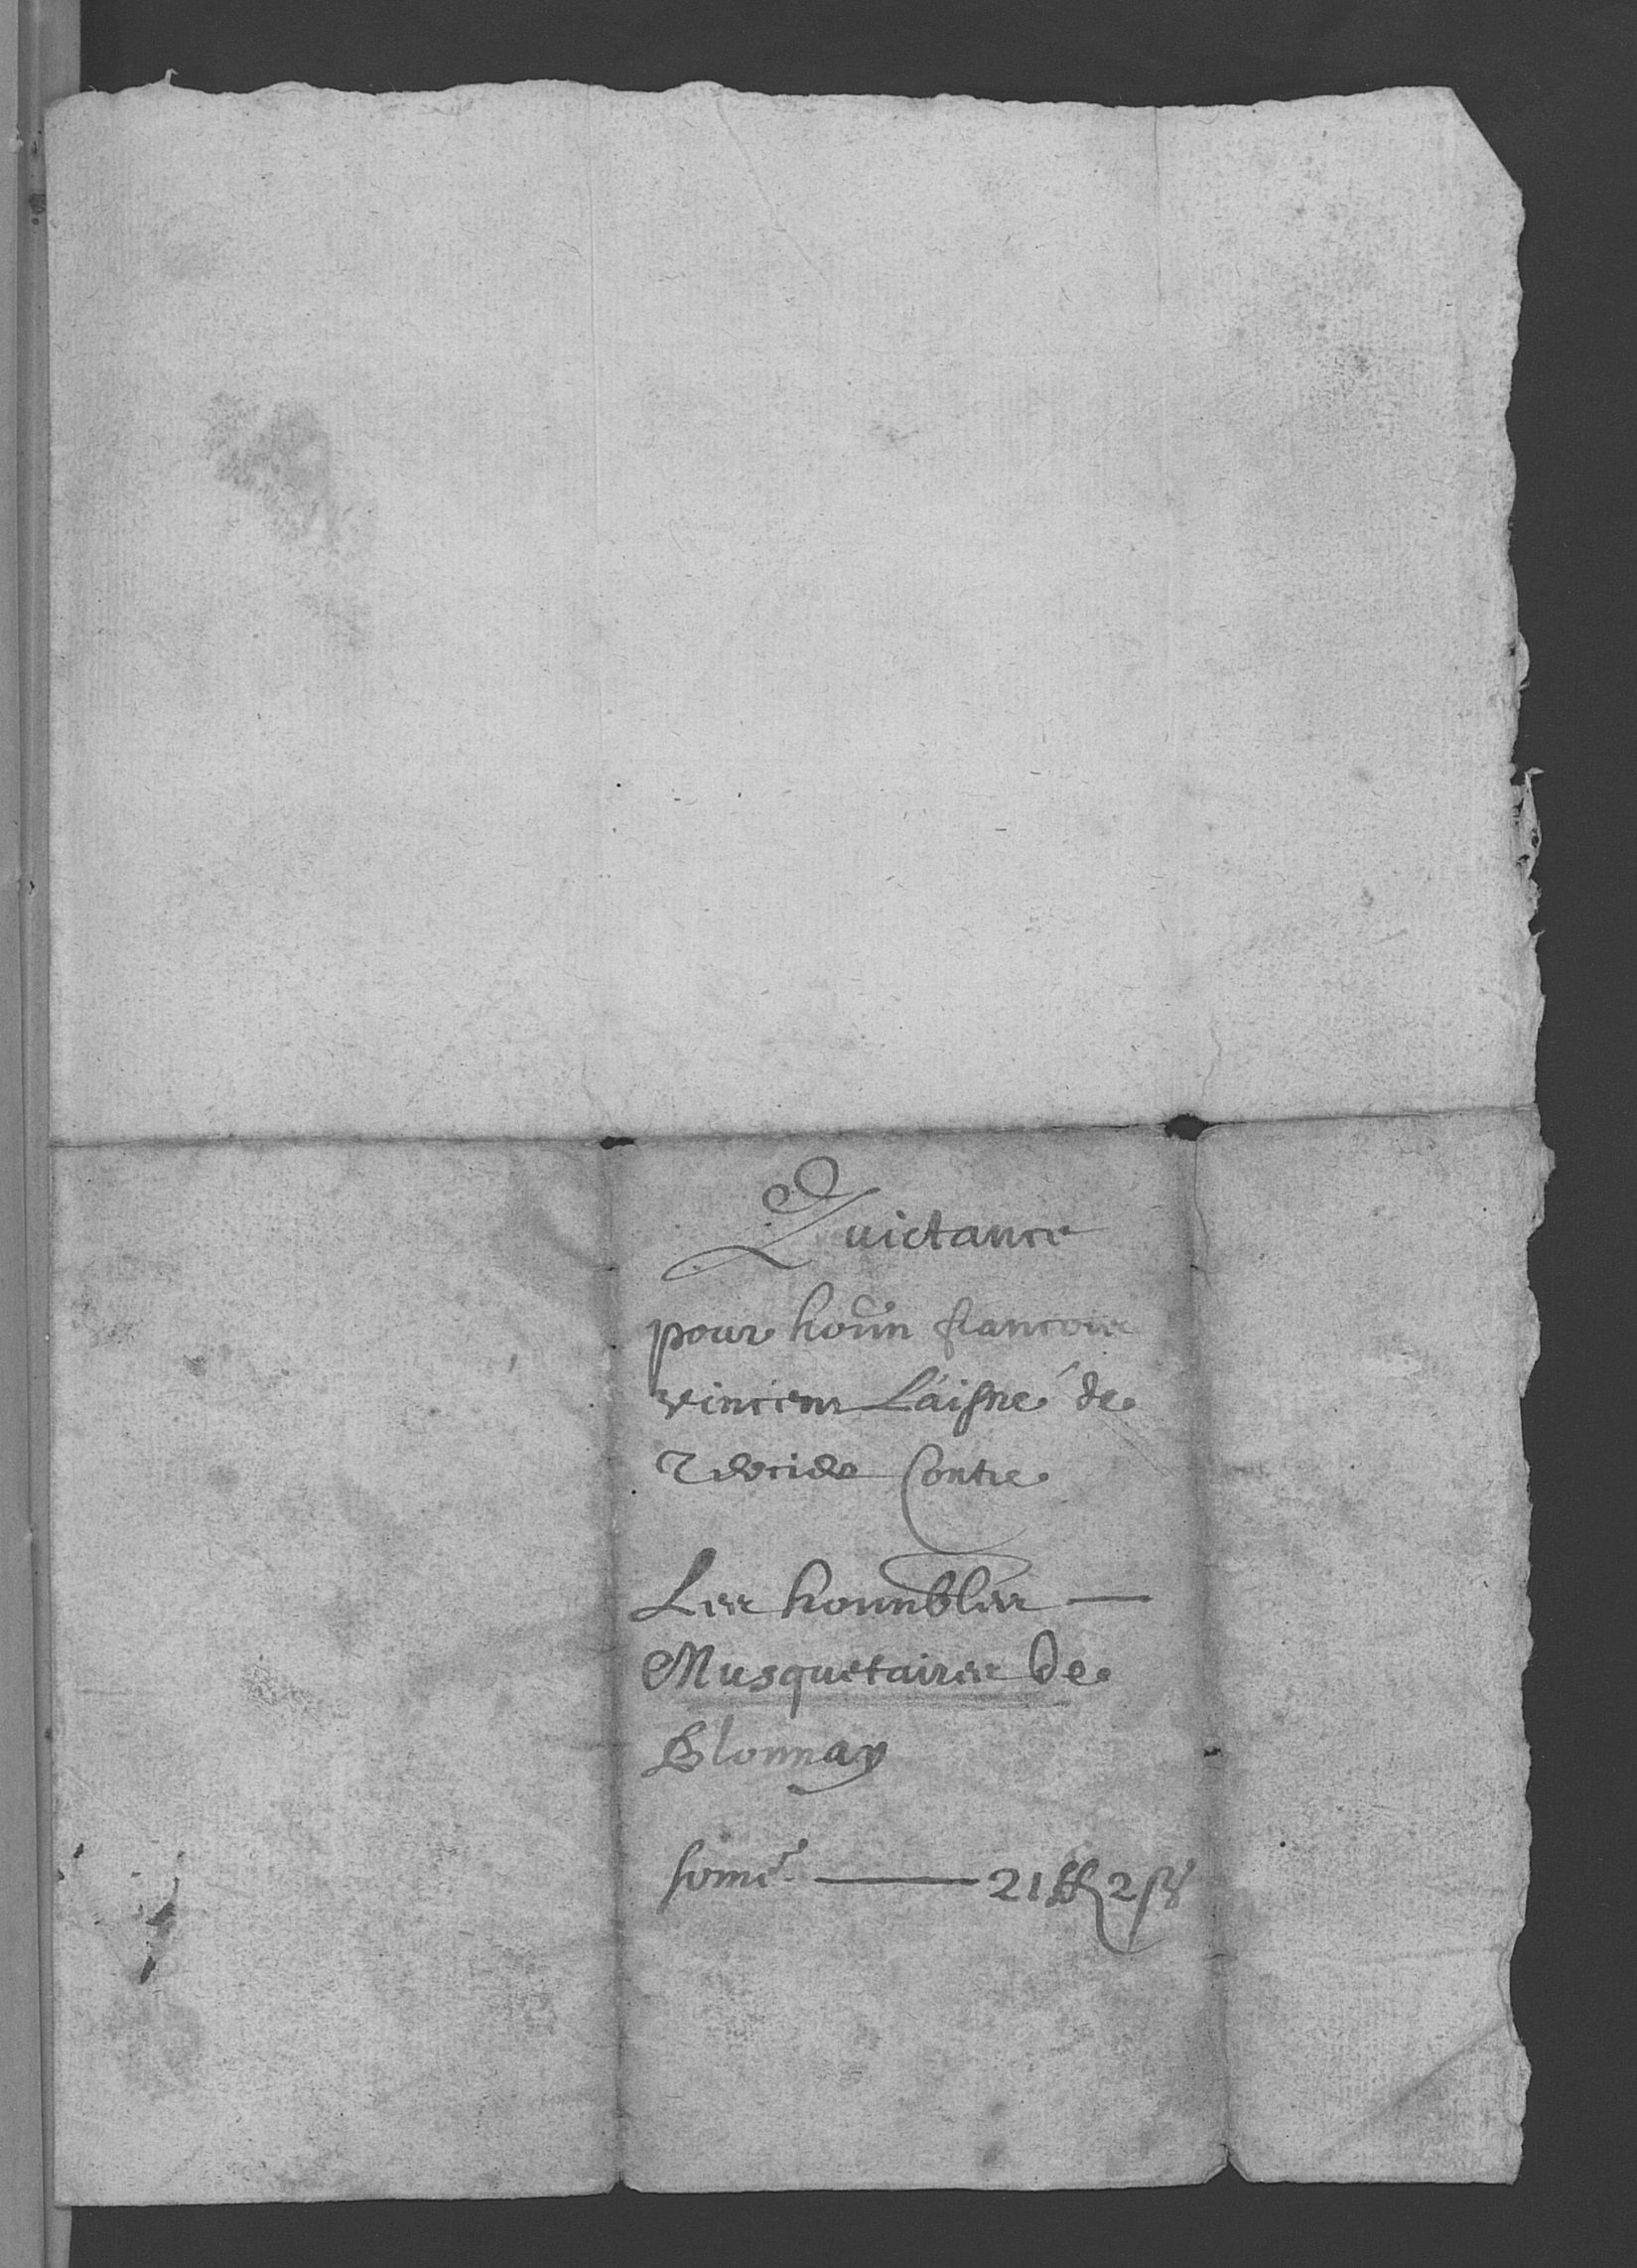 Quictance
pour hoñn francois
vincent L'aisné de
Contre
Les honnbles —
Musquetaires de
Blonnay
some. — 21 ff 2 ß